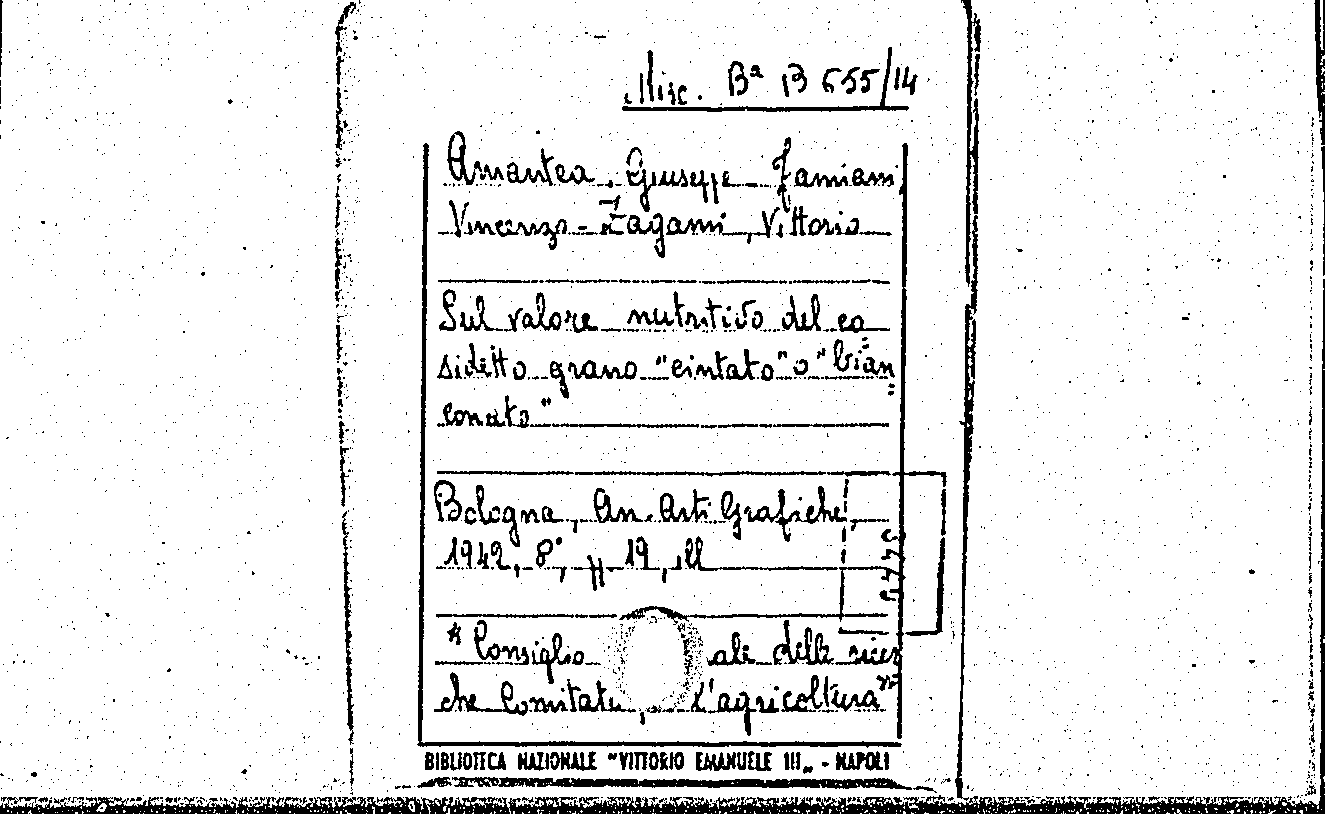 Misc. Bª B 655/14
Amantea, Giuseppe - Famiani,
Vincenzo - Zagami, Vittorio
Sul valore nutritivo del co=
sidetto grano "cintato" o "bian=
conato"
Bologna, An. Arti Grafiche,
1942, 8°, pp 19, ill
* Consiglio ale delle ricer
che Comitato l'agricoltura*
BIBLIOTECA NAZIONALE "VITTORIO EMANUELE III„ - NAPOLI